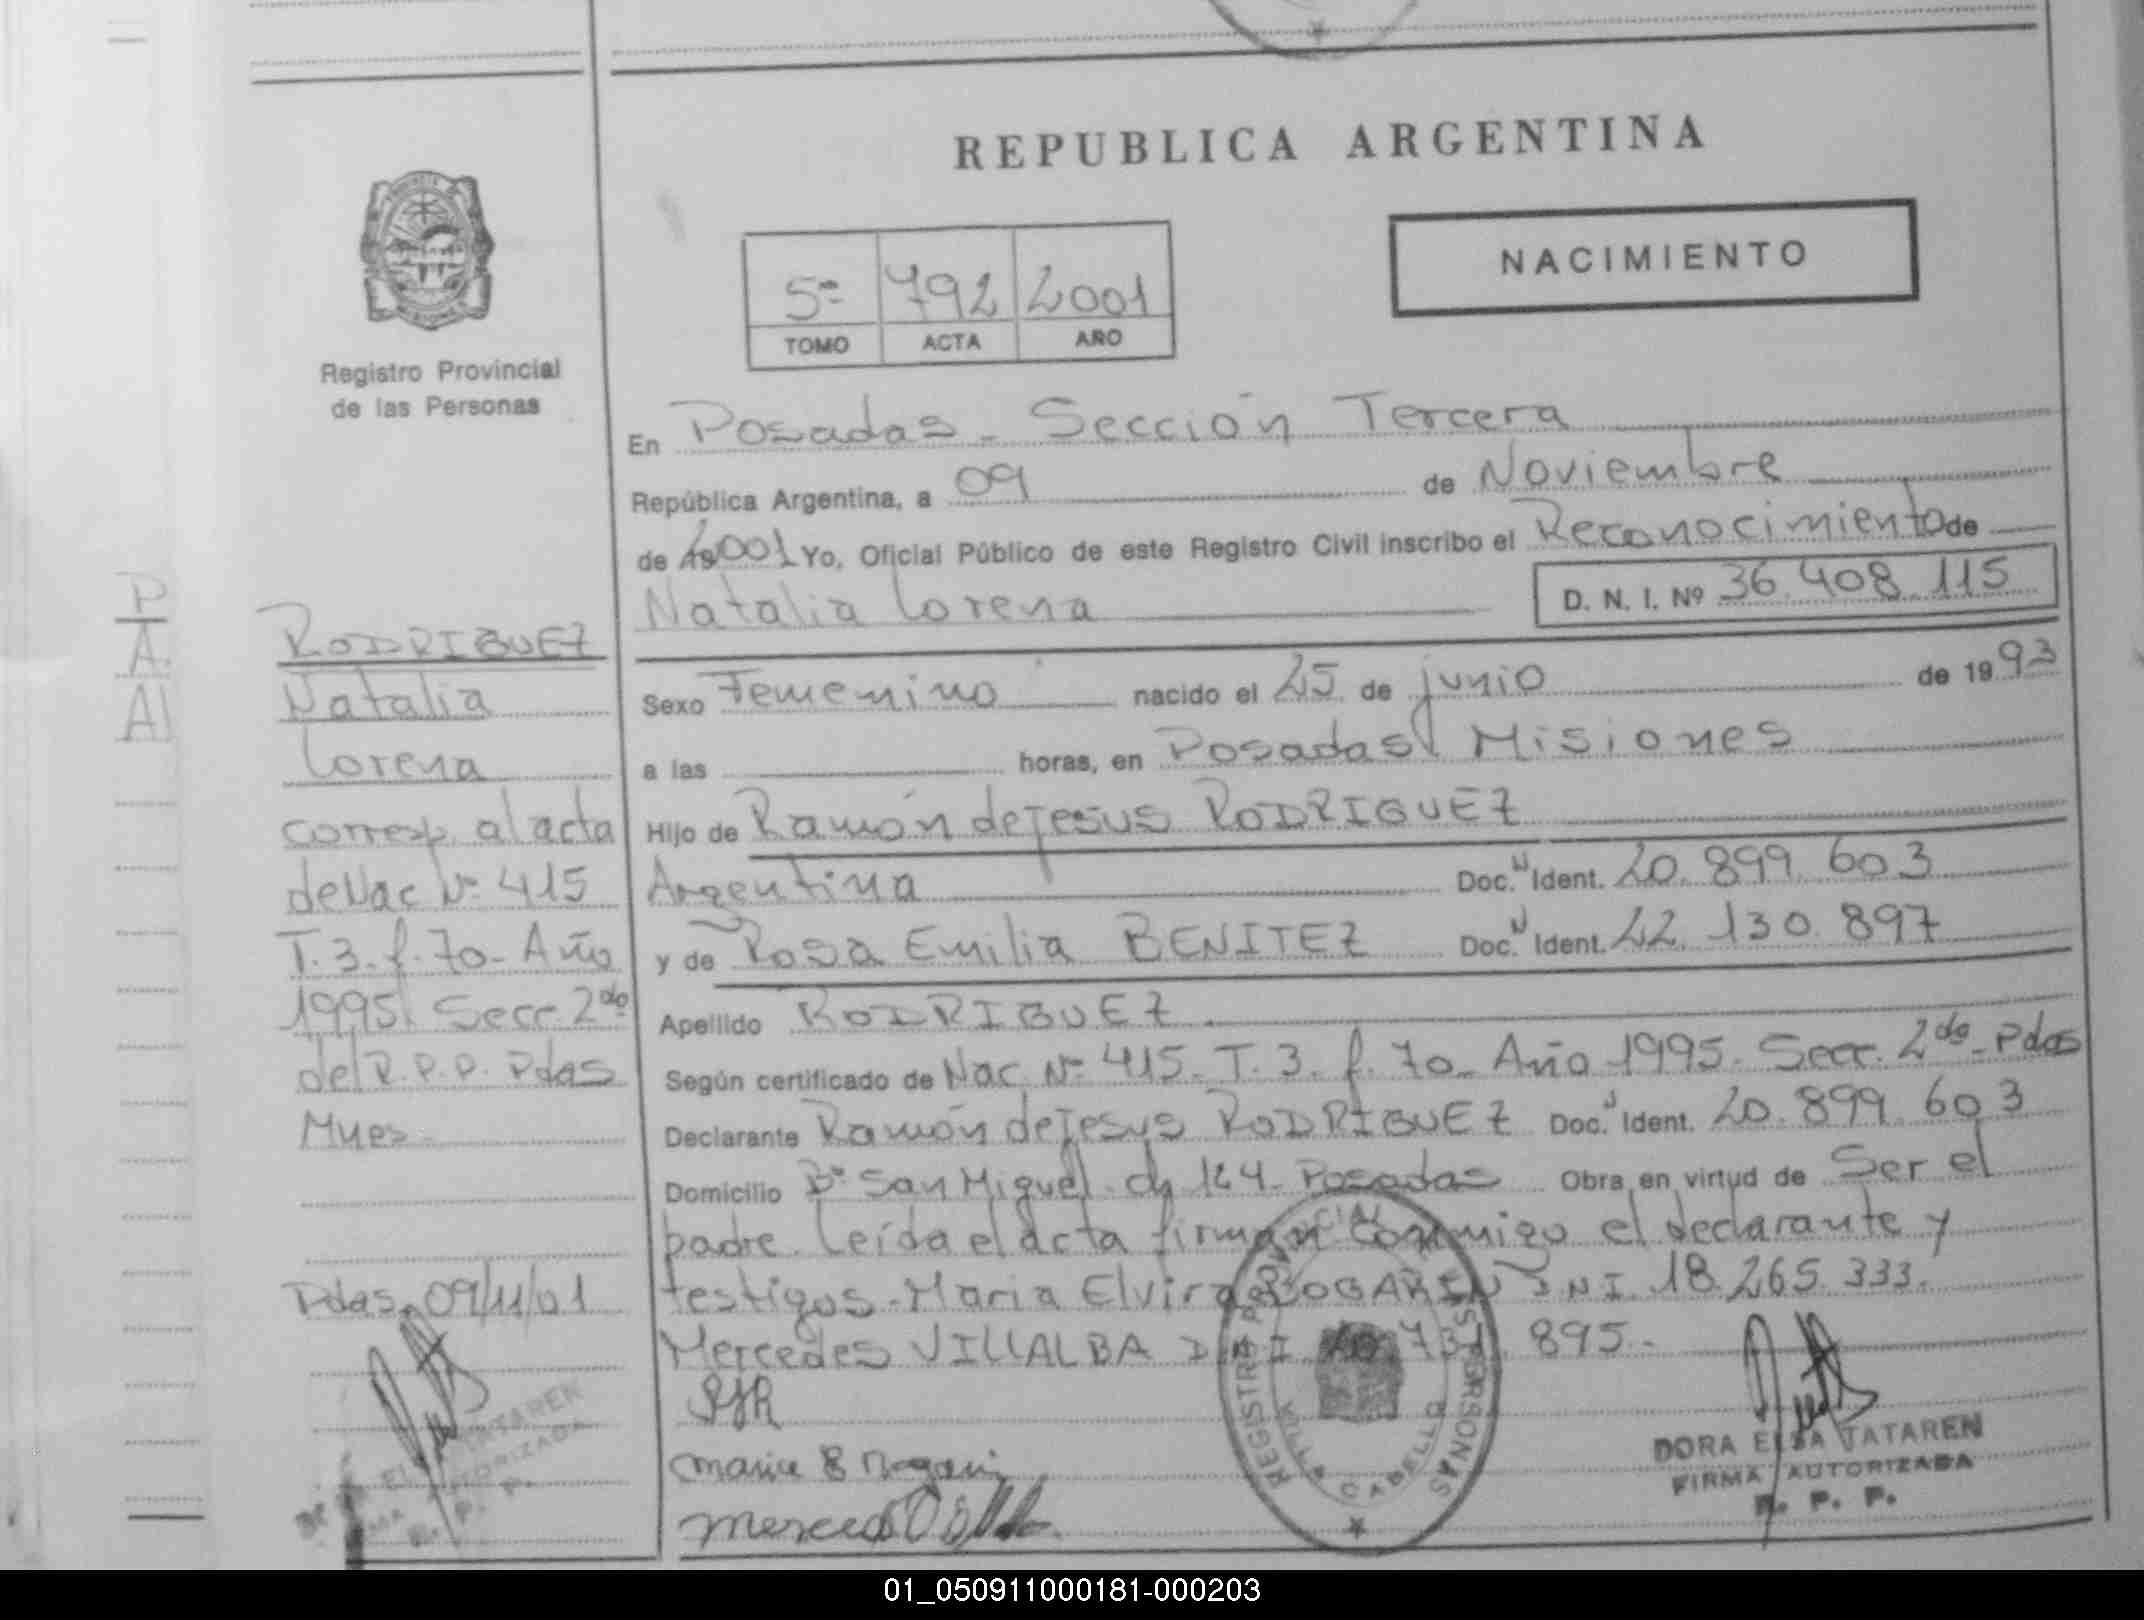 REPUBLICA ARGENTINA
NACIMIENTO
5º 792 2001
TOMO ACTA AÑO
Registro Provincial
de las Personas
En Posadas - Sección Tercera
República Argentina, a 09 de Noviembre
de 2001 Yo, Oficial Público de este Registro Civil inscribo el Reconocimiento de
Natalia Lorena D. N. I. Nº 36.408.115
Sexo Femenino nacido el 25 de junio de 1993
a las horas, en Posadas Misiones
Hijo de Ramón de Jesús RODRIGUEZ
Argentina Doc. Ident. 20.899.603
y de Rosa Emilia BENITEZ Doc. Ident. 22.130.897
Apellido RODRIGUEZ
Según certificado de Nac. Nº 415. T. 3. f. 70. Año 1995. Secc. 2do - Pdas
Declarante Ramón de Jesús RODRIGUEZ Doc. Ident. 20.899.603
Domicilio Bº San Miguel ch 124 - Posadas Obra en virtud de Ser el
padre. Leída el acta firman conmigo el declarante y
testigos - Maria Elvira BOGARIN DNI 18.265.333.
Mercedes VILLALBA DNI 895.-
P
A.
Al
RODRIGUEZ
Natalia
Lorena
corresp. al acta
de Nac Nº 415
T. 3. f. 70 - Año
1995 Secc. 2do
del R.P.P. Pdas
Mnes.
Pdas, 09/11/01
REGISTRO PROVINCIAL PERSONAS
VILLA CABELLO
DORA ELSA TATAREN
FIRMA AUTORIZADA
R. P. P.
TATAREN
AUTORIZADA
01_050911000181-000203